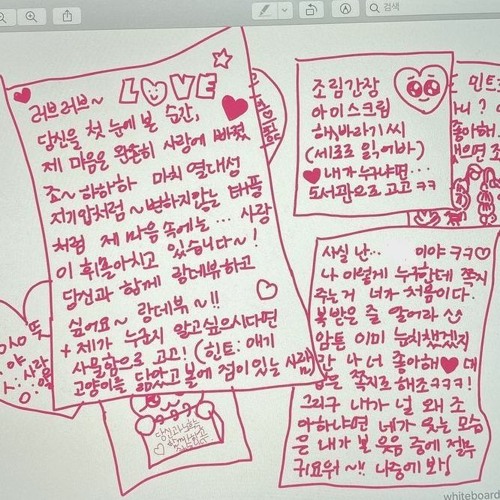 검색
LOVE
러브러브~
당신을 첫 눈에 본 순간,
제 마음을 완전히 사랑에 빠졌
죠~ 하하하 마치 열대성
저기압처럼~변하지않는 태풍
처럼 제 마음 속에는... 사랑
이 휘몰아치고 있습니다~!
당신과 함께 랑데뷰하고
싶어요~ 랑데뷰~!!
+ 제가 누군지 알고싶으시다면
사물함으로 고고! (힌트: 애기
고양이를 닮았고 볼에 점이 있는 사람)
조림간장
아이스크림
해바라기씨
(세로로 읽어봐)
내가 누구냐면...
도서관으로 고고 ㅋㅋ
민트
니?
좋아해
사실 난... 이야 ㅋㅋ
나 이렇게 누구한테 쪽지
주는거 너가 처음이다.
복받은 줄 알어라
암튼 이미 눈치챘겠지
만 나 너 좋아해 대
답은 쪽지로 해조ㅋㅋㅋ!
그리구 내가 널 왜 조
아하냐면 네가 웃는 모습
은 내가 본 웃음 중에 젤루
귀요워~!! 나중에 봐!
당신과 나랑
whiteboard